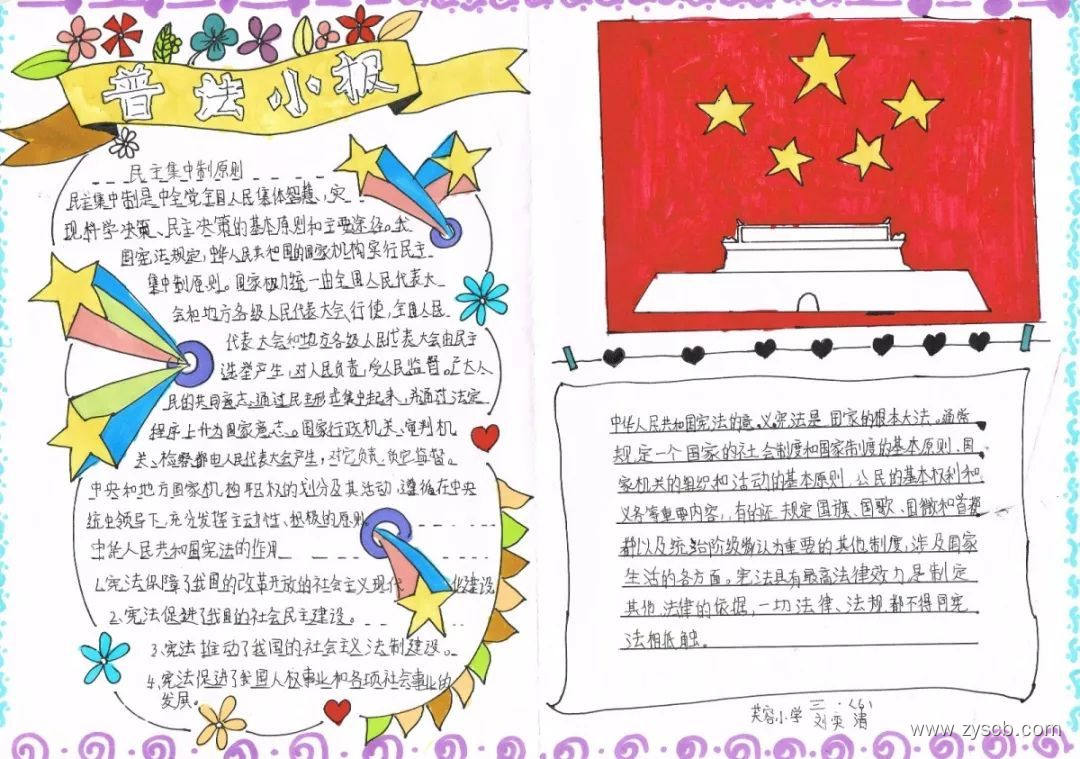 普法小报
民主集中制原则
民主集中制是中全党全国人民集体智慧,实
现科学决策、民主决策的基本原则和主要途径。我
国宪法规定,中华人民共和国的国家机构实行民主
集中制原则。国家权力统一由全国人民代表大
会和地方各级人民代表大会行使,全国人民
代表大会和地方各级人民代表大会由民主
选举产生,对人民负责,受人民监督。广大人
民的共同意志,通过民主形式集中起来,并通过法定
程序上升为国家意志。国家行政机关、审判机
关、检察都由人民代表大会产生,对它负责,负它监督。
中央和地方国家机构职权的划分及其活动,遵循在中央
统一领导下,充分发挥主动性、积极的原则
中华人民共和国宪法的作用
1.宪法保障了我国的改革开放的社会主义现代化建设
2、宪法促进了我国的社会民主建设。
3.宪法推动了我国的社会主义法制建设。
4.宪法促进了我国人权事业和各项社会事业的
发展。
中华人民共和国宪法的意义宪法是国家的根本大法。通常
规定一个国家的社会制度和国家制度的基本原则、国
家机关的组织和活动的基本原则,公民的基本权利和
义务等重要内容,有的还规定国旗、国歌、国徽和首都
都以及统治阶级确认为重要的其他制度,涉及国家
生活的各方面。宪法具有最高法律效力是制定
其他法律的依据,一切法律、法规都不得同宪
法相抵触。
芙蓉小学 三·(6)
www.zyscb.com